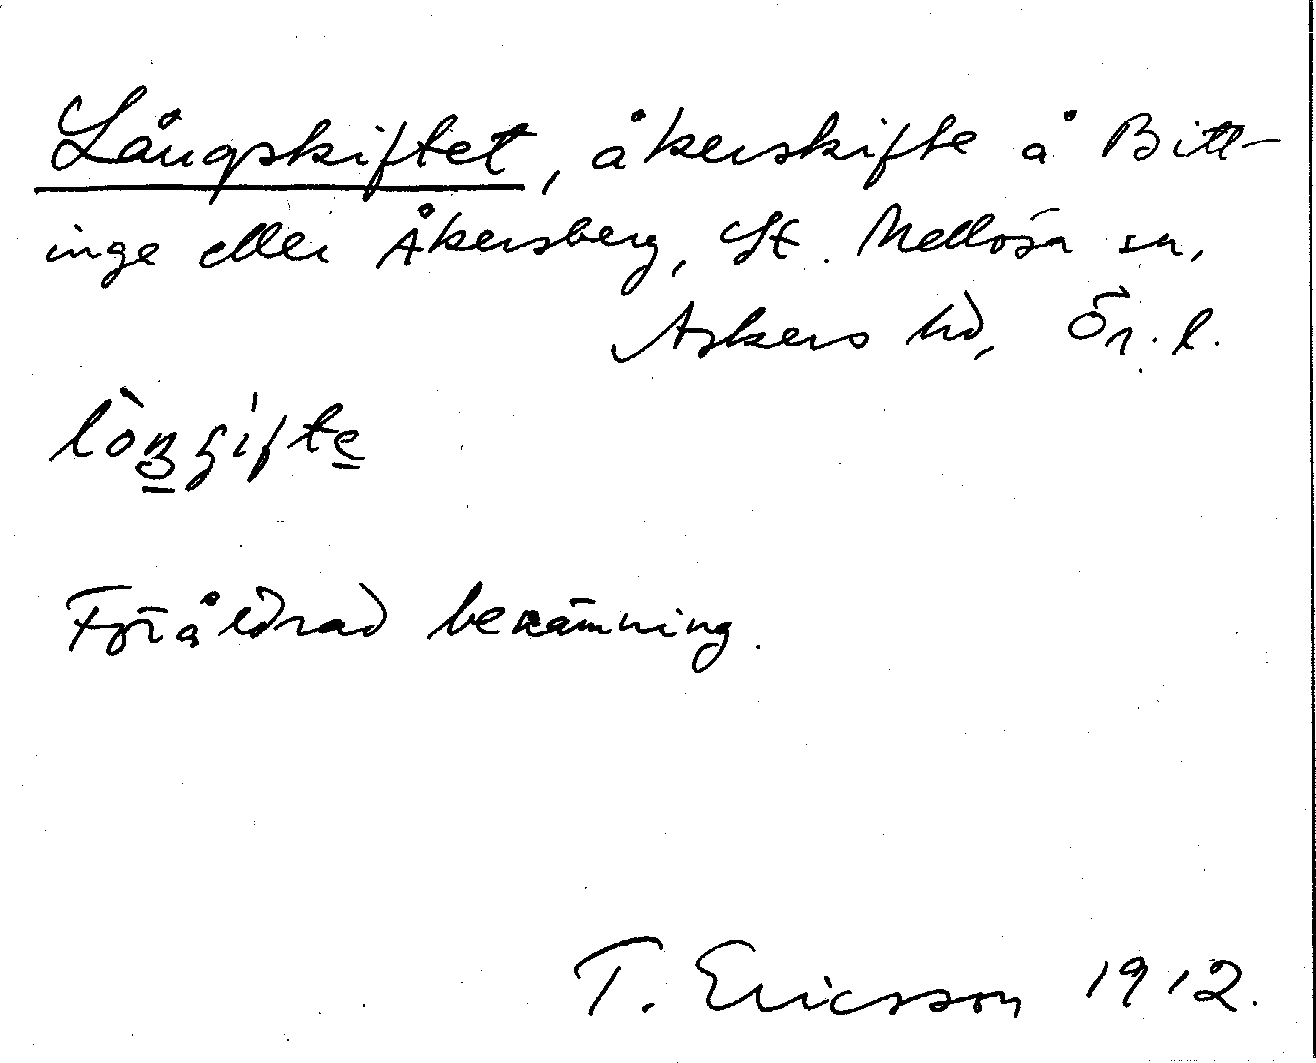 Långskiftet, åkerskifte å Bitt-
inge eller Åkersberg, St. Mellösa sn,
Askers hd, Ör. l.
Föråldrad benämning.
T. Ericsson 1912.